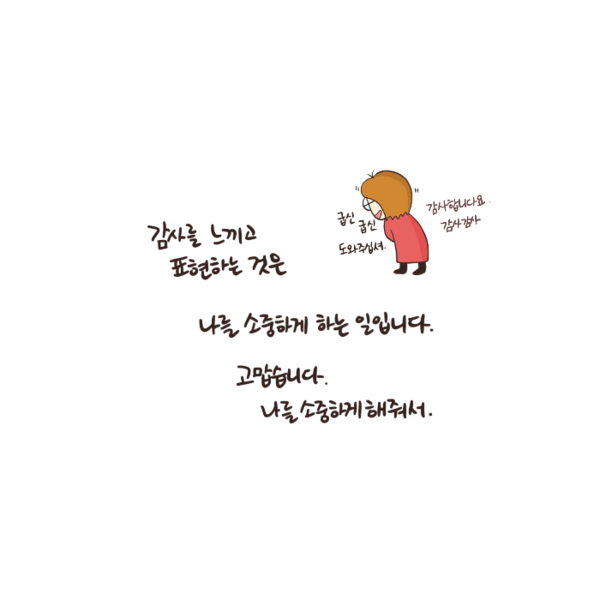 감사를 느끼고
표현하는 것은
굽신
굽신
도와주십셔.
감사합니다요.
감사감사
나를 소중하게 하는 일입니다.
고맙습니다.
나를 소중하게 해줘서.